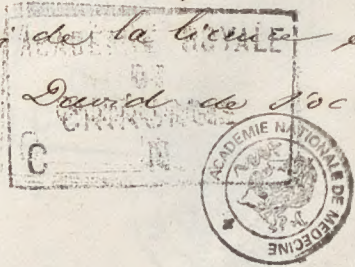 de la licence
David de Soc
ACADEMIE ROYALE
DE
CHIRURGIE
C N
ACADEMIE NATIONALE DE MEDECINE